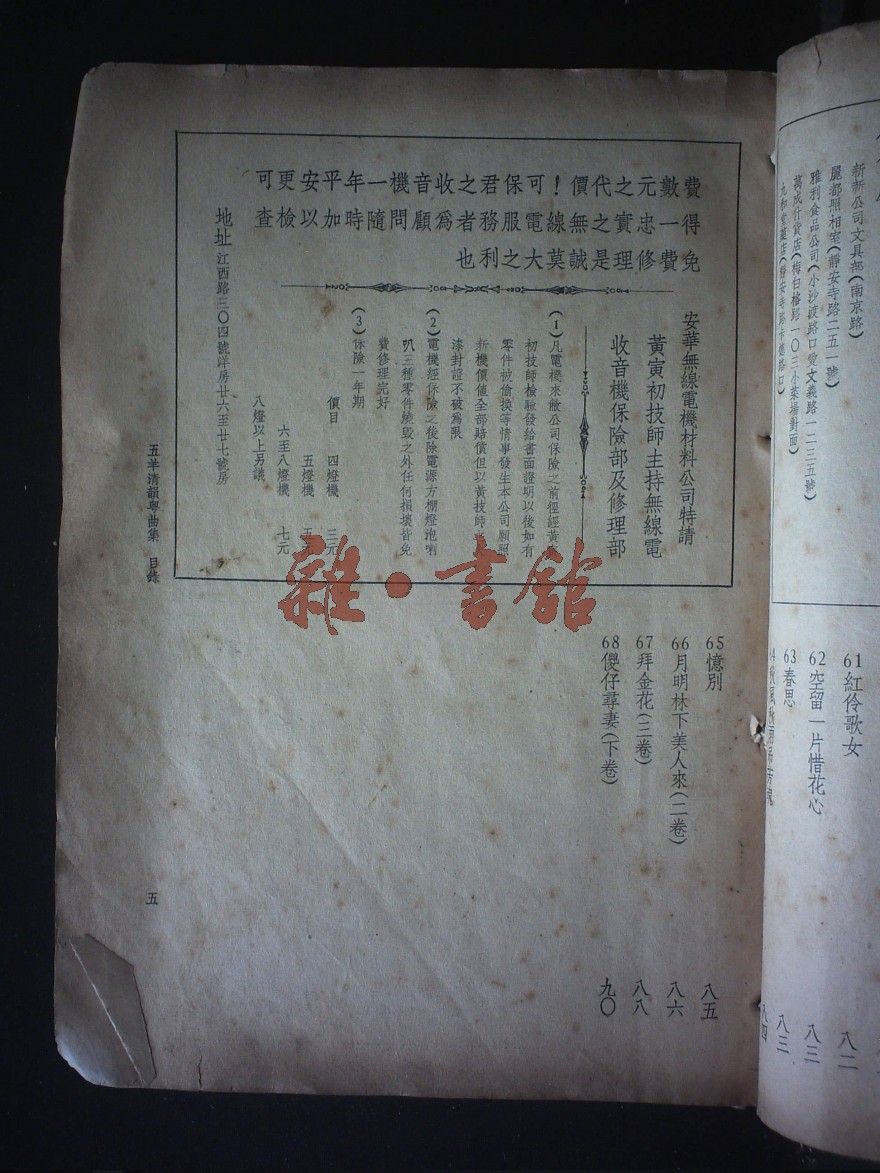 新新公司文具部(南京路)
麗都照相室(靜安寺路二五一號)
雅利食品公司(小沙渡路口愛文義路一二三五號)
萬成什貨店(梅白格路一〇三小菜場對面)
61 紅伶歌女 八二
62 空留一片惜花心 八三
63 春思 八三
八四
費數元之代價!可保君之收音機一年平安更可
得一忠實之無線電服務者為顧問隨時加以檢查
免費修理是誠莫大之利也
安華無線電機材料公司特請
黃寅初技師主持無線電
收音機保險部及修理部
(1)凡電機來敝公司保險之前徑經黃
初技師檢驗發給書面證明以後如有
零件被偷換等情事發生本公司願照
新機價值全部賠償但以黃技師
漆封證不破為限
(2)電機經保險之後除電源方棚燈泡喇
叭三種零件燒毀之外任何損壞皆免
費修理完好
(3)保險一年期
價目 四燈機 三元
五燈機 五元
六至八燈機 七元
八燈以上另議
地址 江西路三〇四號洋房廿六至廿七號房
65 憶別 八五
66 月明林下美人來(二卷) 八六
67 拜金花(三卷) 八八
68 儍仔尋妻(下卷) 九〇
五羊清韻粵曲集 目錄
五
雜·書館